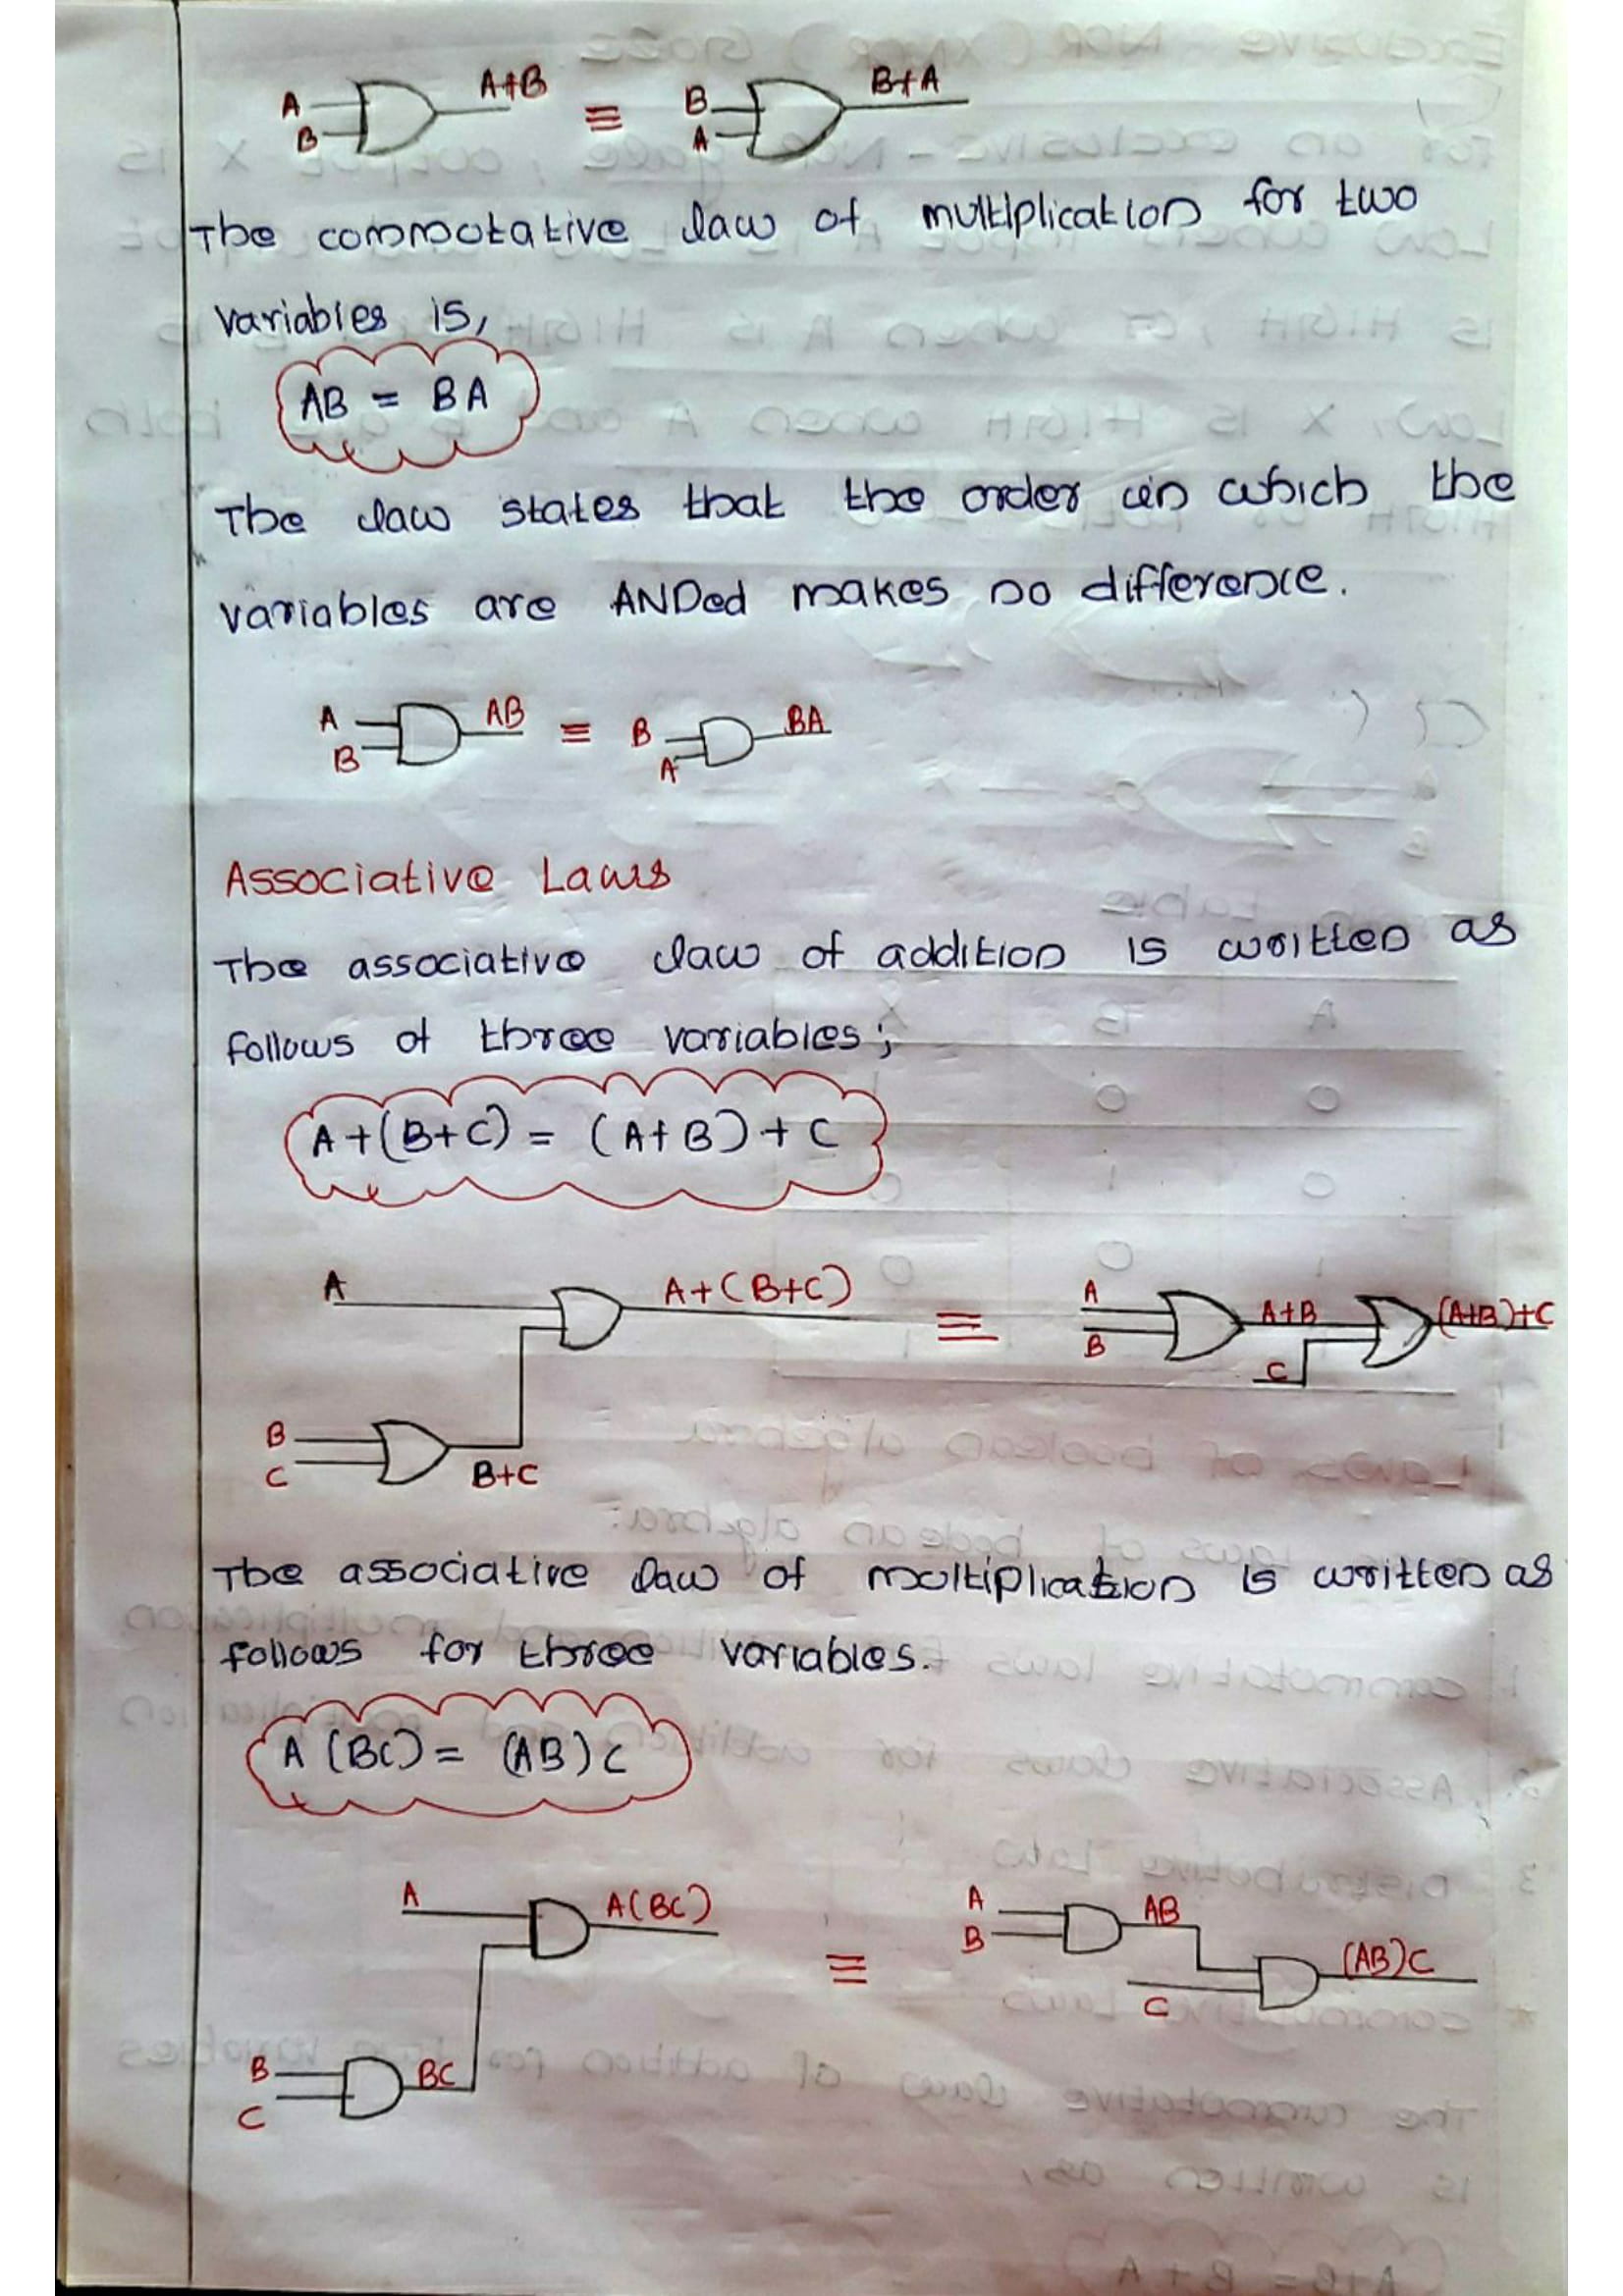 A
B
A+B
≡
B
A
B+A
The commutative law of multiplication for two
variables is,
AB = BA
The law states that the order in which the
variables are ANDed makes no difference.
A
B
AB
≡
B
A
BA
Associative Laws
The associative law of addition is written as
follows of three variables;
A+(B+C) = (A+B)+C
A
A+(B+C)
B
C
B+C
≡
A
B
A+B
C
(A+B)+C
The associative law of multiplication is written as
follows for three variables.
A (BC) = (AB) C
A
A(BC)
B
C
BC
≡
A
B
AB
C
(AB)C